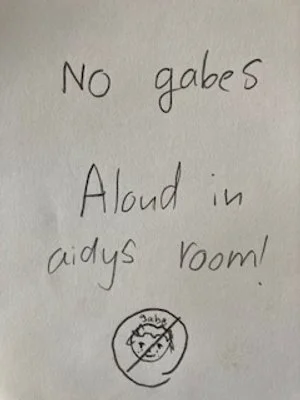 No gabes
Aloud in
aidys room!
gabe